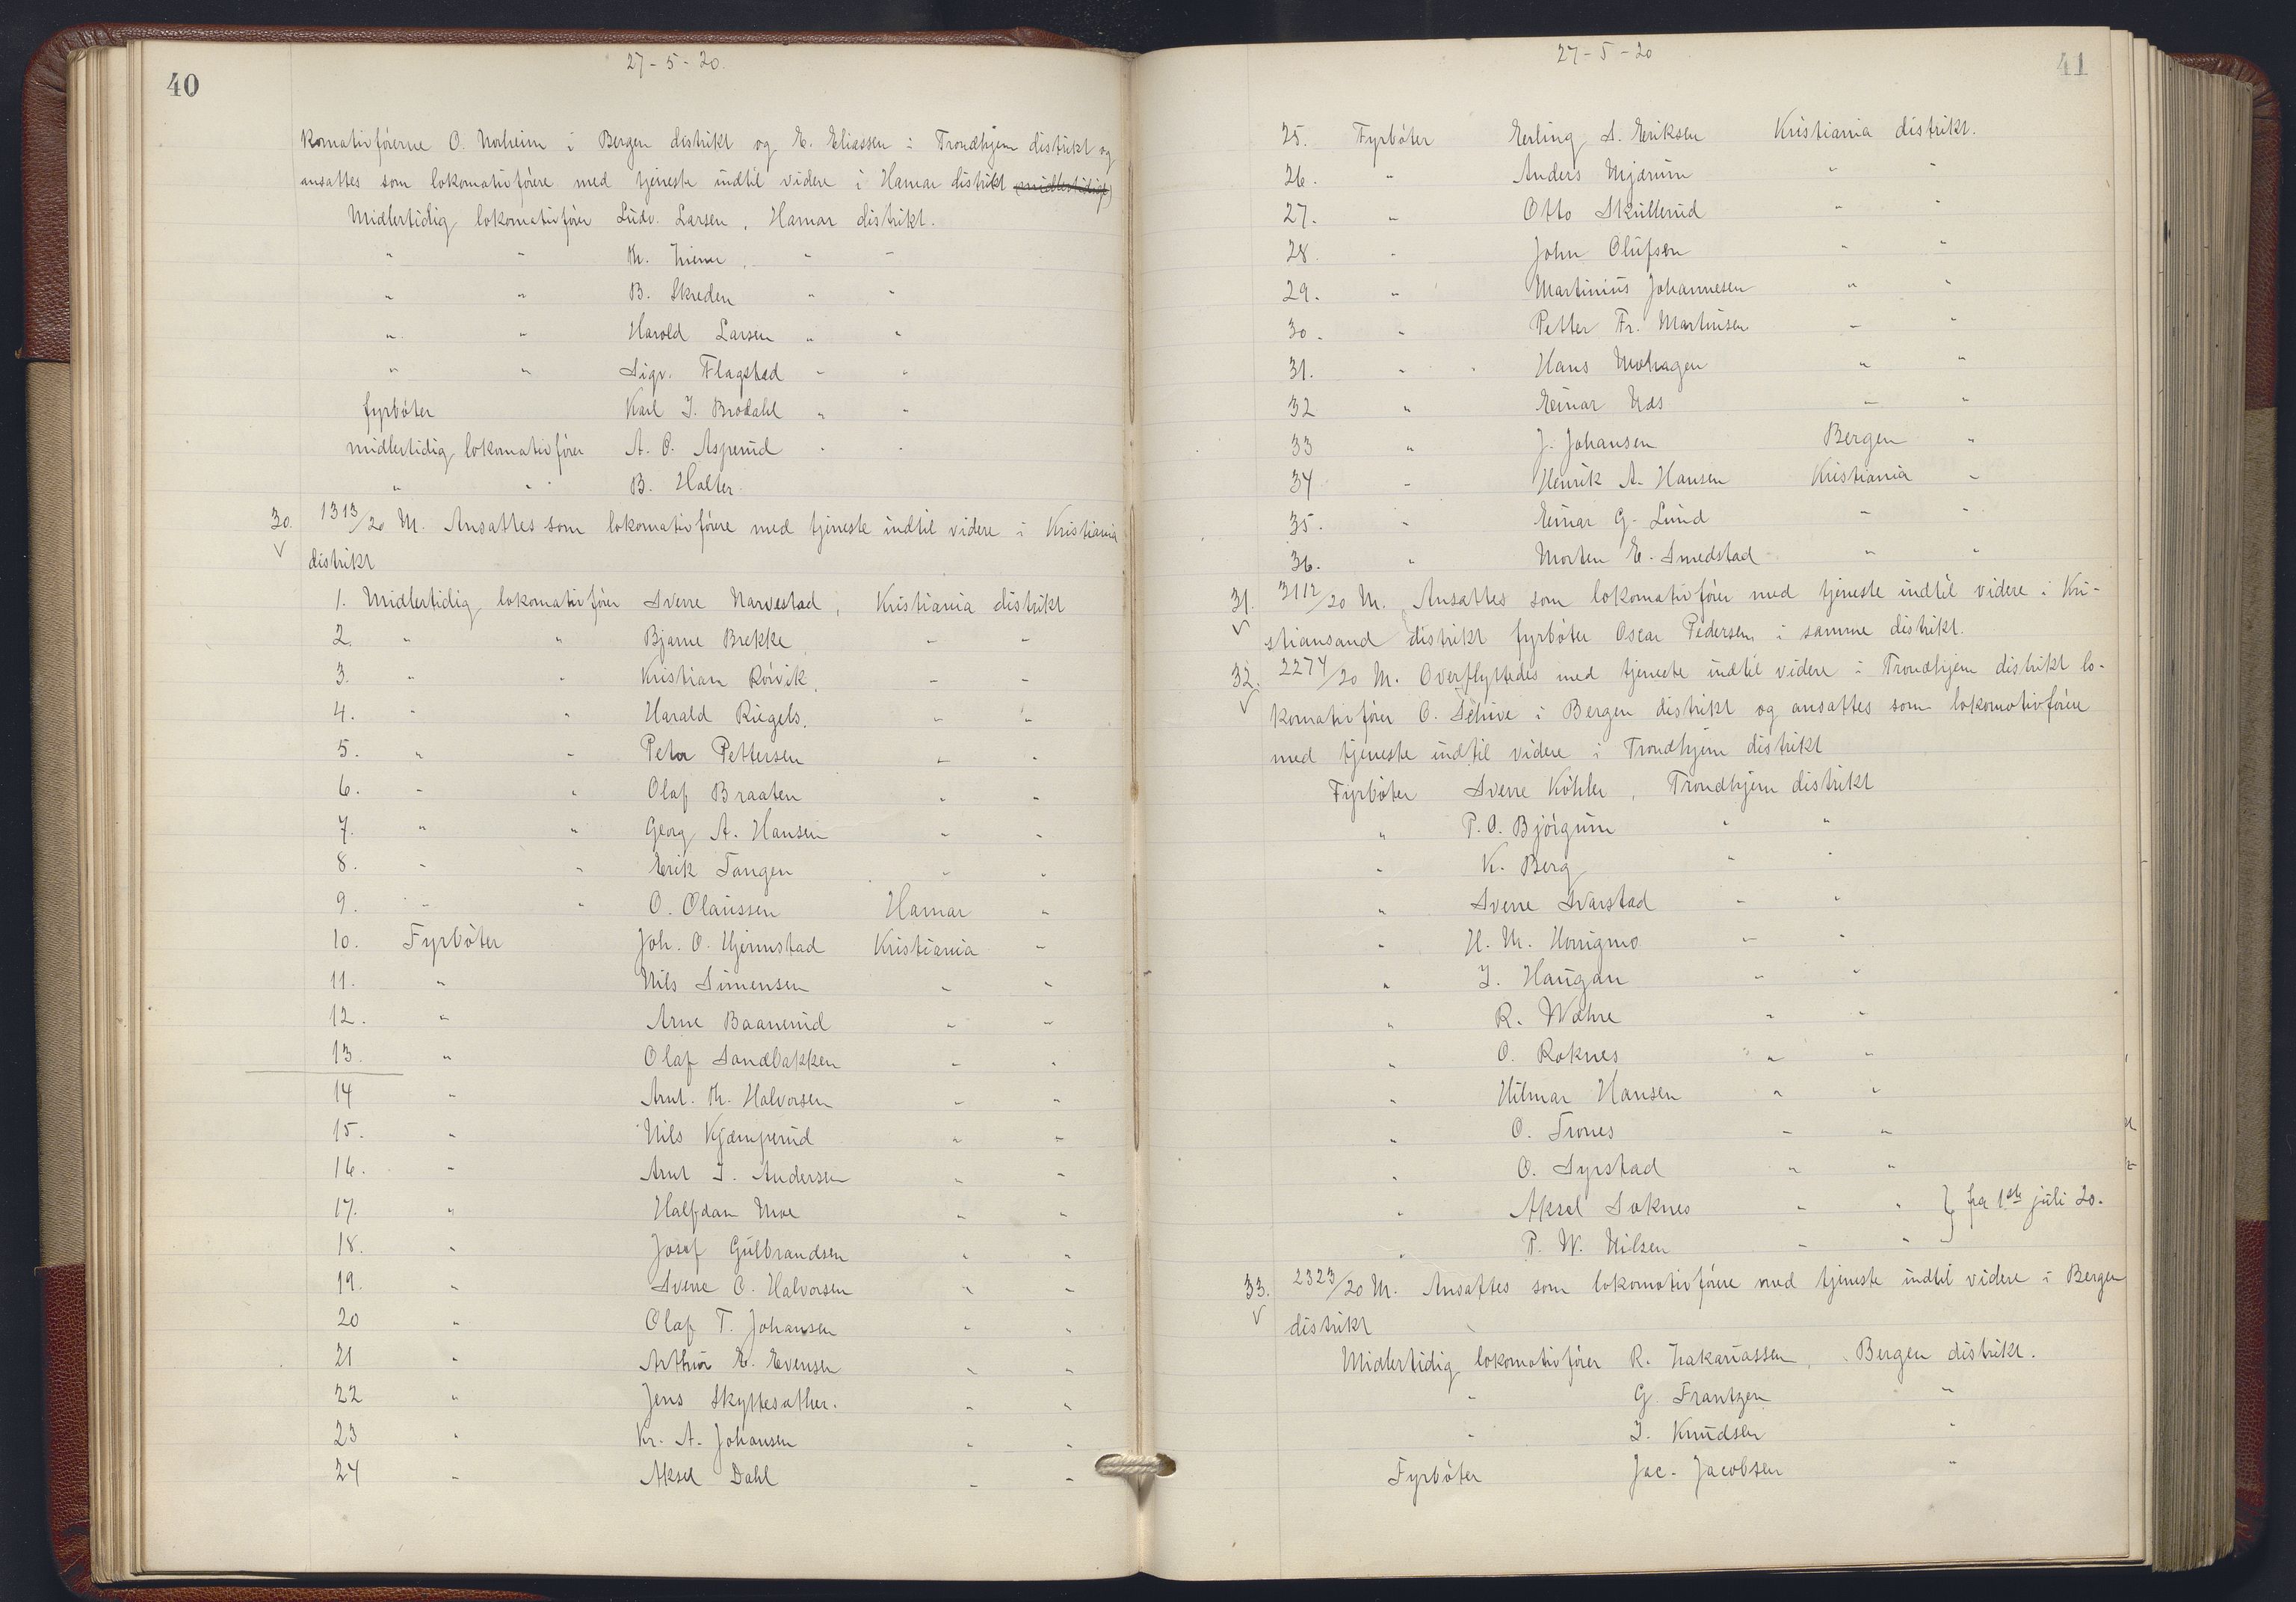 40
27-5-20.
komotivförerne O. Norheim i Bergen distrikt og E. Eliassen i Trondhjem distrikt og
ansattes som lokomotivförere med tjeneste indtil videre i Hamar distrikt (midlertidige)
Midlertidig lokomotivförer Ludv. Larsen, Hamar distrikt.
" " Th. " "
" " B. Skreden " "
" " Harald Larsen " "
" " Sigv. Flagstad " "
fyrböter Karl J. Brodahl " "
midlertidig lokomotivförer A. O. Asperud " "
" " B. Holter.
30. 1313/20 M. Ansattes som lokomotivförere med tjeneste indtil videre i Kristiania
distrikt
1. Midlertidig lokomotivförer Sverre Narvestad, Kristiania distrikt
2. " " Bjarne Brekke, " "
3. " " Kristian Rörvik, " "
4. " " Harald Riegels, " "
5. " " Peter Pettersen " "
6. " " Olaf Braaten " "
7. " " Georg A. Hansen " "
8. " " Erik Tangen " "
9. " " O. Olaussen Hamar "
10. Fyrböter Joh. O. Hjermstad Kristiania "
11. " Nils Simensen " "
12. " Arne Baanerud " "
13. " Olaf Sandbakken " "
14 " Arnt. Th. Halvorsen " "
15. " Nils Kjæmperud " "
16. " Arnt J. Andersen " "
17. " Halfdan Moe " "
18. " Josef Gulbrandsen " "
19. " Sverre O. Halvorsen " "
20 " Olaf T. Johansen " "
21 " Arthur E. Evensen " "
22 " Jens Skyttesæther. " "
23 " Kr. A. Johansen " "
24 " Aksel Dahl " "
27-5-20
41
25. Fyrböter Erling S. Eriksen Kristiania distrikt.
26. " Anders Mjærum " "
27. " Otto Skullerud " "
28. " John Olufsen " "
29. " Martinius Johannesen " "
30. " Petter Fr. Martinsen " "
31. " Hans Mohagen " "
32 " Einar Næs " "
33 " J. Johansen Bergen "
34 " Henrik A. Hansen Kristiania "
35. " Einar G. Lund " "
36. " Morten E. Smedstad " "
31. 3112/20 M. Ansattes som lokomotivförer med tjeneste indtil videre i Kri-
stiansand distrikt fyrböter Oscar Pedersen i samme distrikt.
32. 2274/20 M. Overflyttedes med tjeneste indtil videre i Trondhjem distrikt lo-
komotivförer O. Schive i Bergen distrikt og ansattes som lokomotivförere
med tjeneste indtil videre i Trondhjem distrikt
Fyrböter Sverre Köhler, Trondhjem distrikt
" P. O. Bjórgum " "
" K. Berg " "
" Sverre Svarstad " "
" H. M. " "
" J. Haugan " "
" R. Wæhre " "
" O. Roknes " "
" Hilmar Hansen " "
" O. Trones " "
" O. Syrstad " "
" Aksel Soknes " " } fra 1ste juli 20.
" P. W. Nilsen " "
33. 2323/20 M. Ansattes som lokomotivförere med tjeneste indtil videre i Bergen
distrikt
Midlertidig lokomotivförer R. Zakariassen, Bergen distrikt.
" G. Frantzen "
" J. Knudsen "
Fyrböter Jac. Jacobsen "